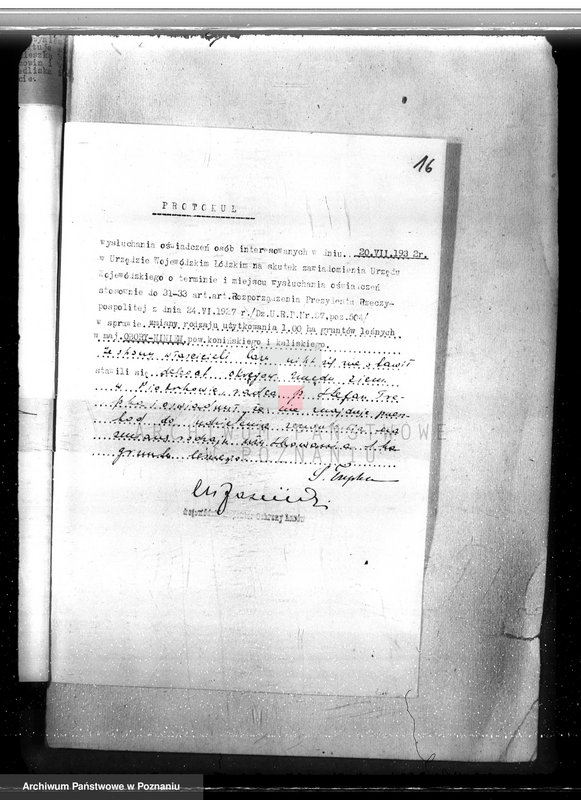 16
PROTOKUŁ
wysłuchania oświadczeń osób interesowanych w dniu...20.VII.1932r.
w Urzędzie Wojewódzkim Łódzkim na skutek zawiadomienia Urzędu
Wojewódzkiego o terminie i miejscu wysłuchania oświadczeń
stosownie do 31-33 art.art.Rozporządzenia Prezydenta Rzeczy-
pospolitej z dnia 24.VI.1927 r./Dz.U.R.P.Nr.57.poz.504/
w sprawie zmiany rodzaju użytkowania 1.00 ha gruntów leśnych
w maj. pow.konińskiego i kaliskiego.
Ze strony właścicieli lasu nikt się nie stawił
stawili się delegat okręgow. urzędu ziem.
w Piotrkowie radca p. Stefan Tre-
pka i oświadczył, że nie znajduje przesz-
kod do udzielenia zezwolenia na
zmianę rodzaju użytkowania 1 ha
gruntu leśnego.
S. Trepka
Ochrony Lasów
ARCHIWUM PAŃSTWOWE
W POZNANIU
Archiwum Państwowe w Poznaniu